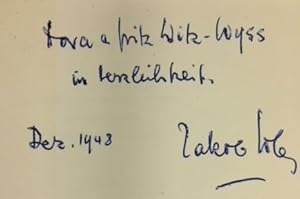 Dora u Fritz Witz-Wyss
in Herzlichkeit.
Dez. 1948
Jakob